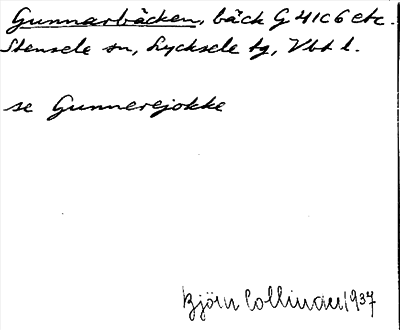 Gunnarbäcken, bäck G 41 c 6 etc.
Stensele sn, Lycksele tg, Vbt l.
se Gunnerejokke
Björn Collinder 1937